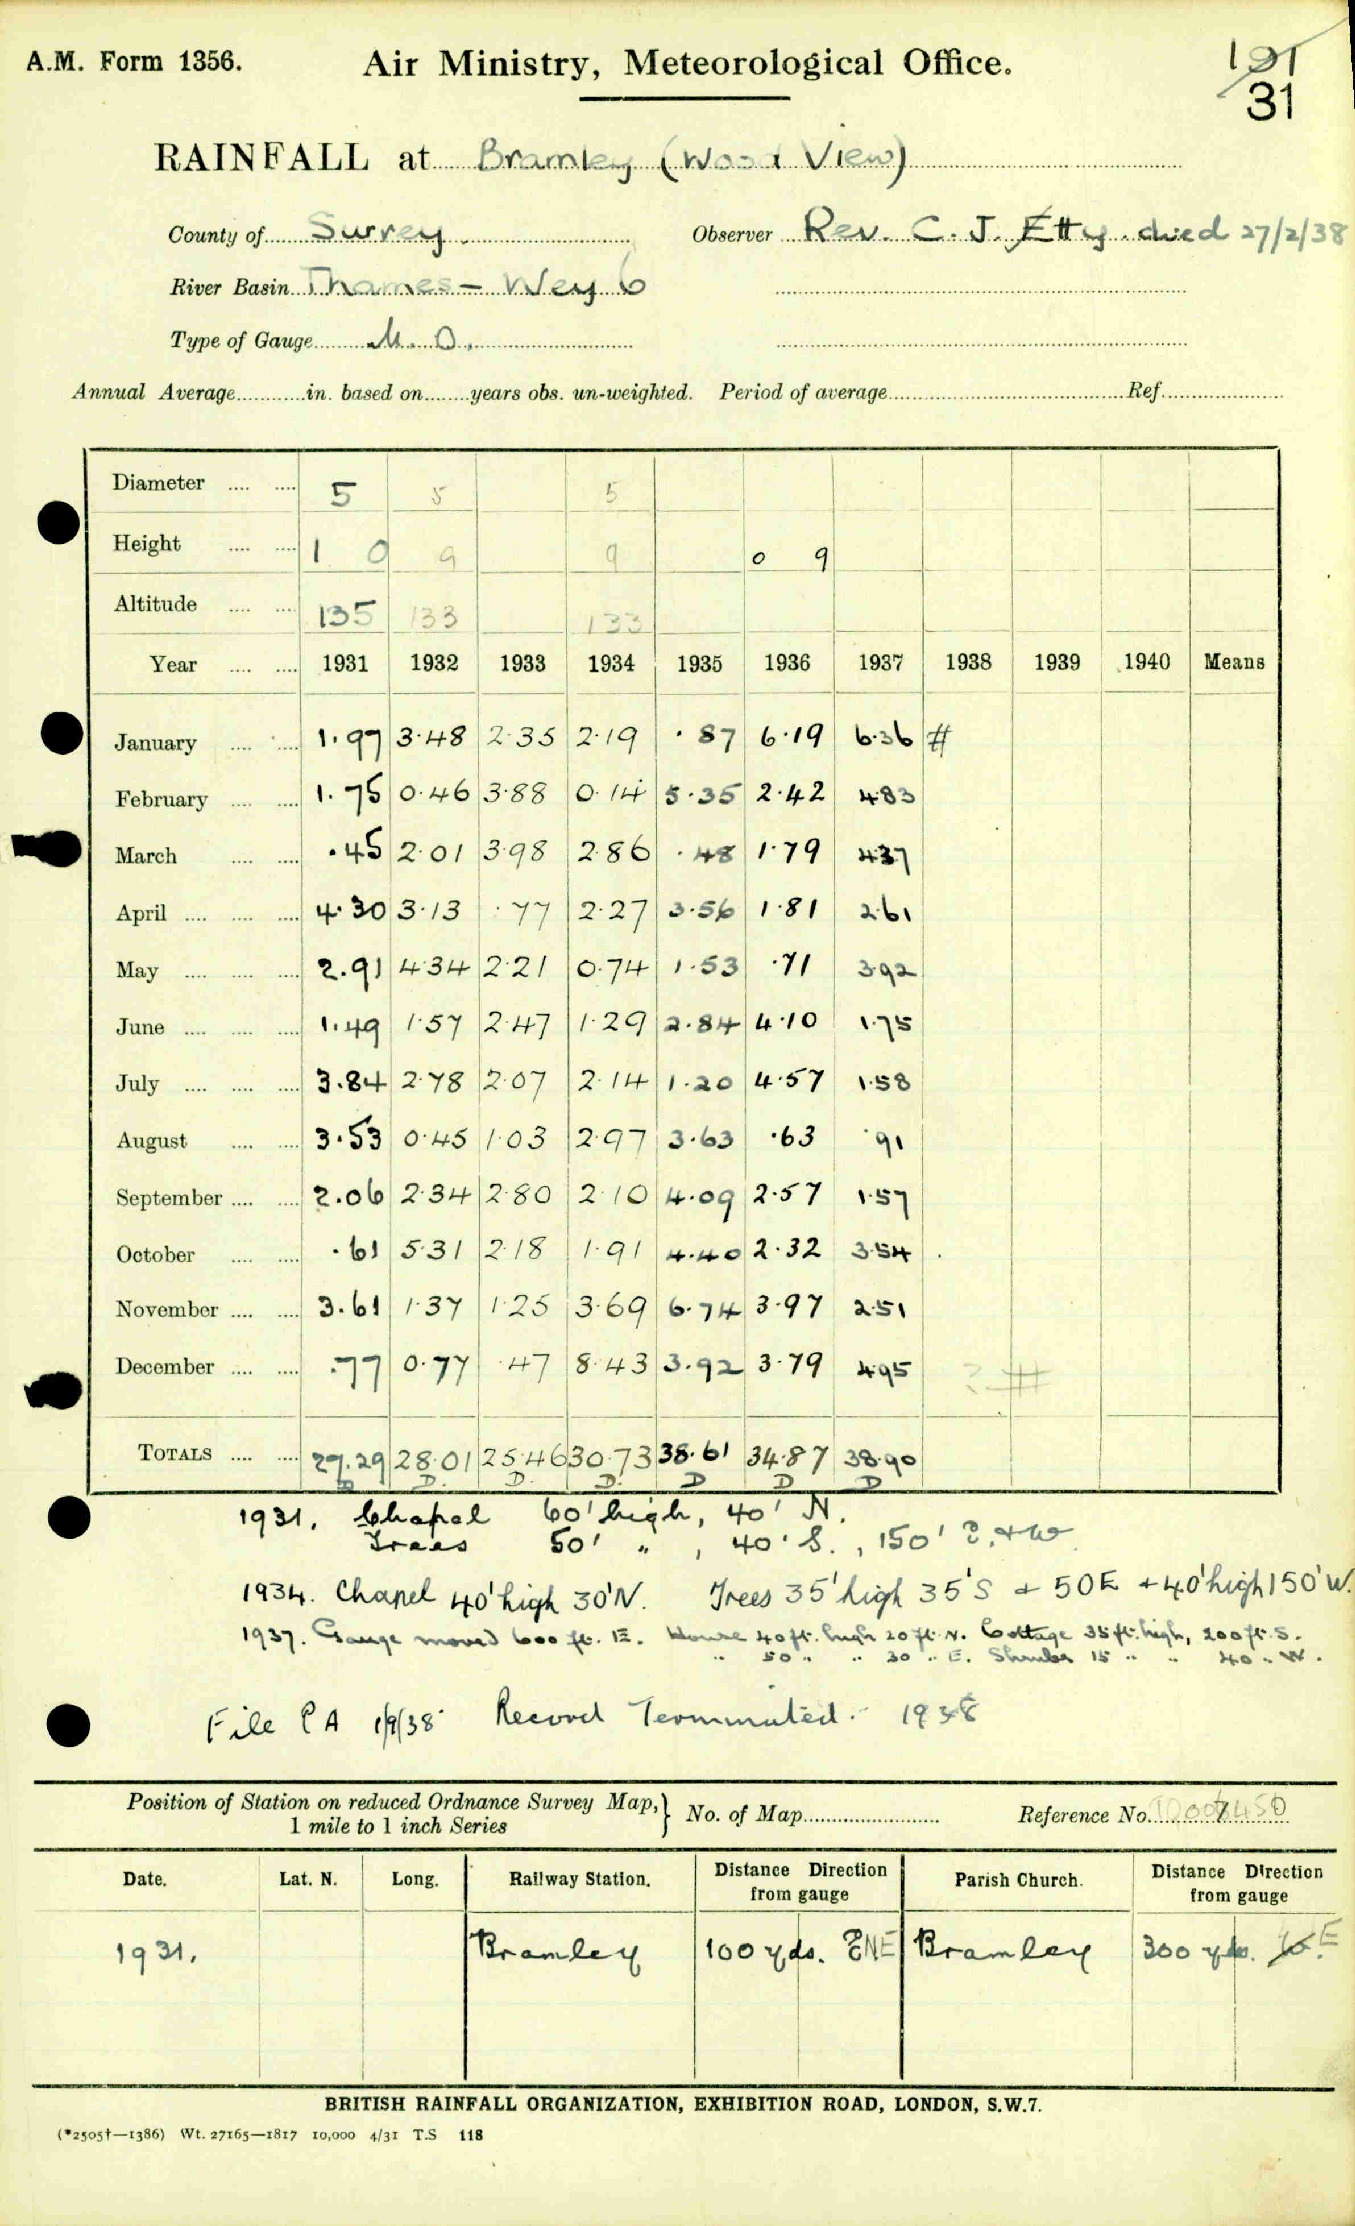 A.M. Form 1356.
Air Ministry, Meteorological Office.
191
31
RAINFALL at Bramley (Wood View)
County of Surrey. Observer Rev. C. J. Etty. died 27/2/38
River Basin Thames - Wey 6
Type of Gauge M. O.
Annual Average in. based on years obs. un-weighted. Period of average Ref.
Diameter 5 5 5
Height 1 0 9 9 0 9
Altitude 135 133 133
Year 1931 1932 1933 1934 1935 1936 1937 1938 1939 1940 Means
January 1.97 3.48 2.35 2.19 .87 6.19 6.36 #
February 1.75 0.46 3.88 0.14 5.35 2.42 4.83
March .45 2.01 3.98 2.86 .48 1.79 4.37
April 4.30 3.13 .77 2.27 3.56 1.81 2.61
May 2.91 4.34 2.21 0.74 1.53 .71 3.92
June 1.49 1.57 2.47 1.29 2.84 4.10 1.75
July 3.84 2.78 2.07 2.14 1.20 4.57 1.58
August 3.53 0.45 1.03 2.97 3.63 .63 .91
September 2.06 2.34 2.80 2.10 4.09 2.57 1.57
October .61 5.31 2.18 1.91 4.40 2.32 3.54
November 3.61 1.37 1.25 3.69 6.74 3.97 2.51
December .77 0.77 .47 8.43 3.92 3.79 4.95 ? #
TOTALS 27.29 28.01 25.46 30.73 38.61 34.87 38.90
D D. D. D. D D D
1931. Chapel 60' high, 40' N.
Trees 50' " , 40' S., 150' E. + W.
1934. Chapel 40' high 30' N. Trees 35' high 35' S + 50 E + 40' high 150' W.
1937. Gauge moved 600 ft. E. House 40 ft. high 20 ft. N. Cottage 35 ft. high, 200 ft. S.
" 50 " " 30 " E. Shrubs 15 " " 40 " W.
File PA 1/9/38 Record Terminated. 1938
Position of Station on reduced Ordnance Survey Map, } No. of Map Reference No.
1 mile to 1 inch Series
Date. Lat. N. Long. Railway Station. Distance Direction from gauge Parish Church. Distance Direction from gauge
1931. Bramley 100 yds. ENE Bramley 300 yds. E
BRITISH RAINFALL ORGANIZATION, EXHIBITION ROAD, LONDON, S.W.7.
(*2505†—1386) Wt. 27165—1817 10,000 4/31 T.S 118